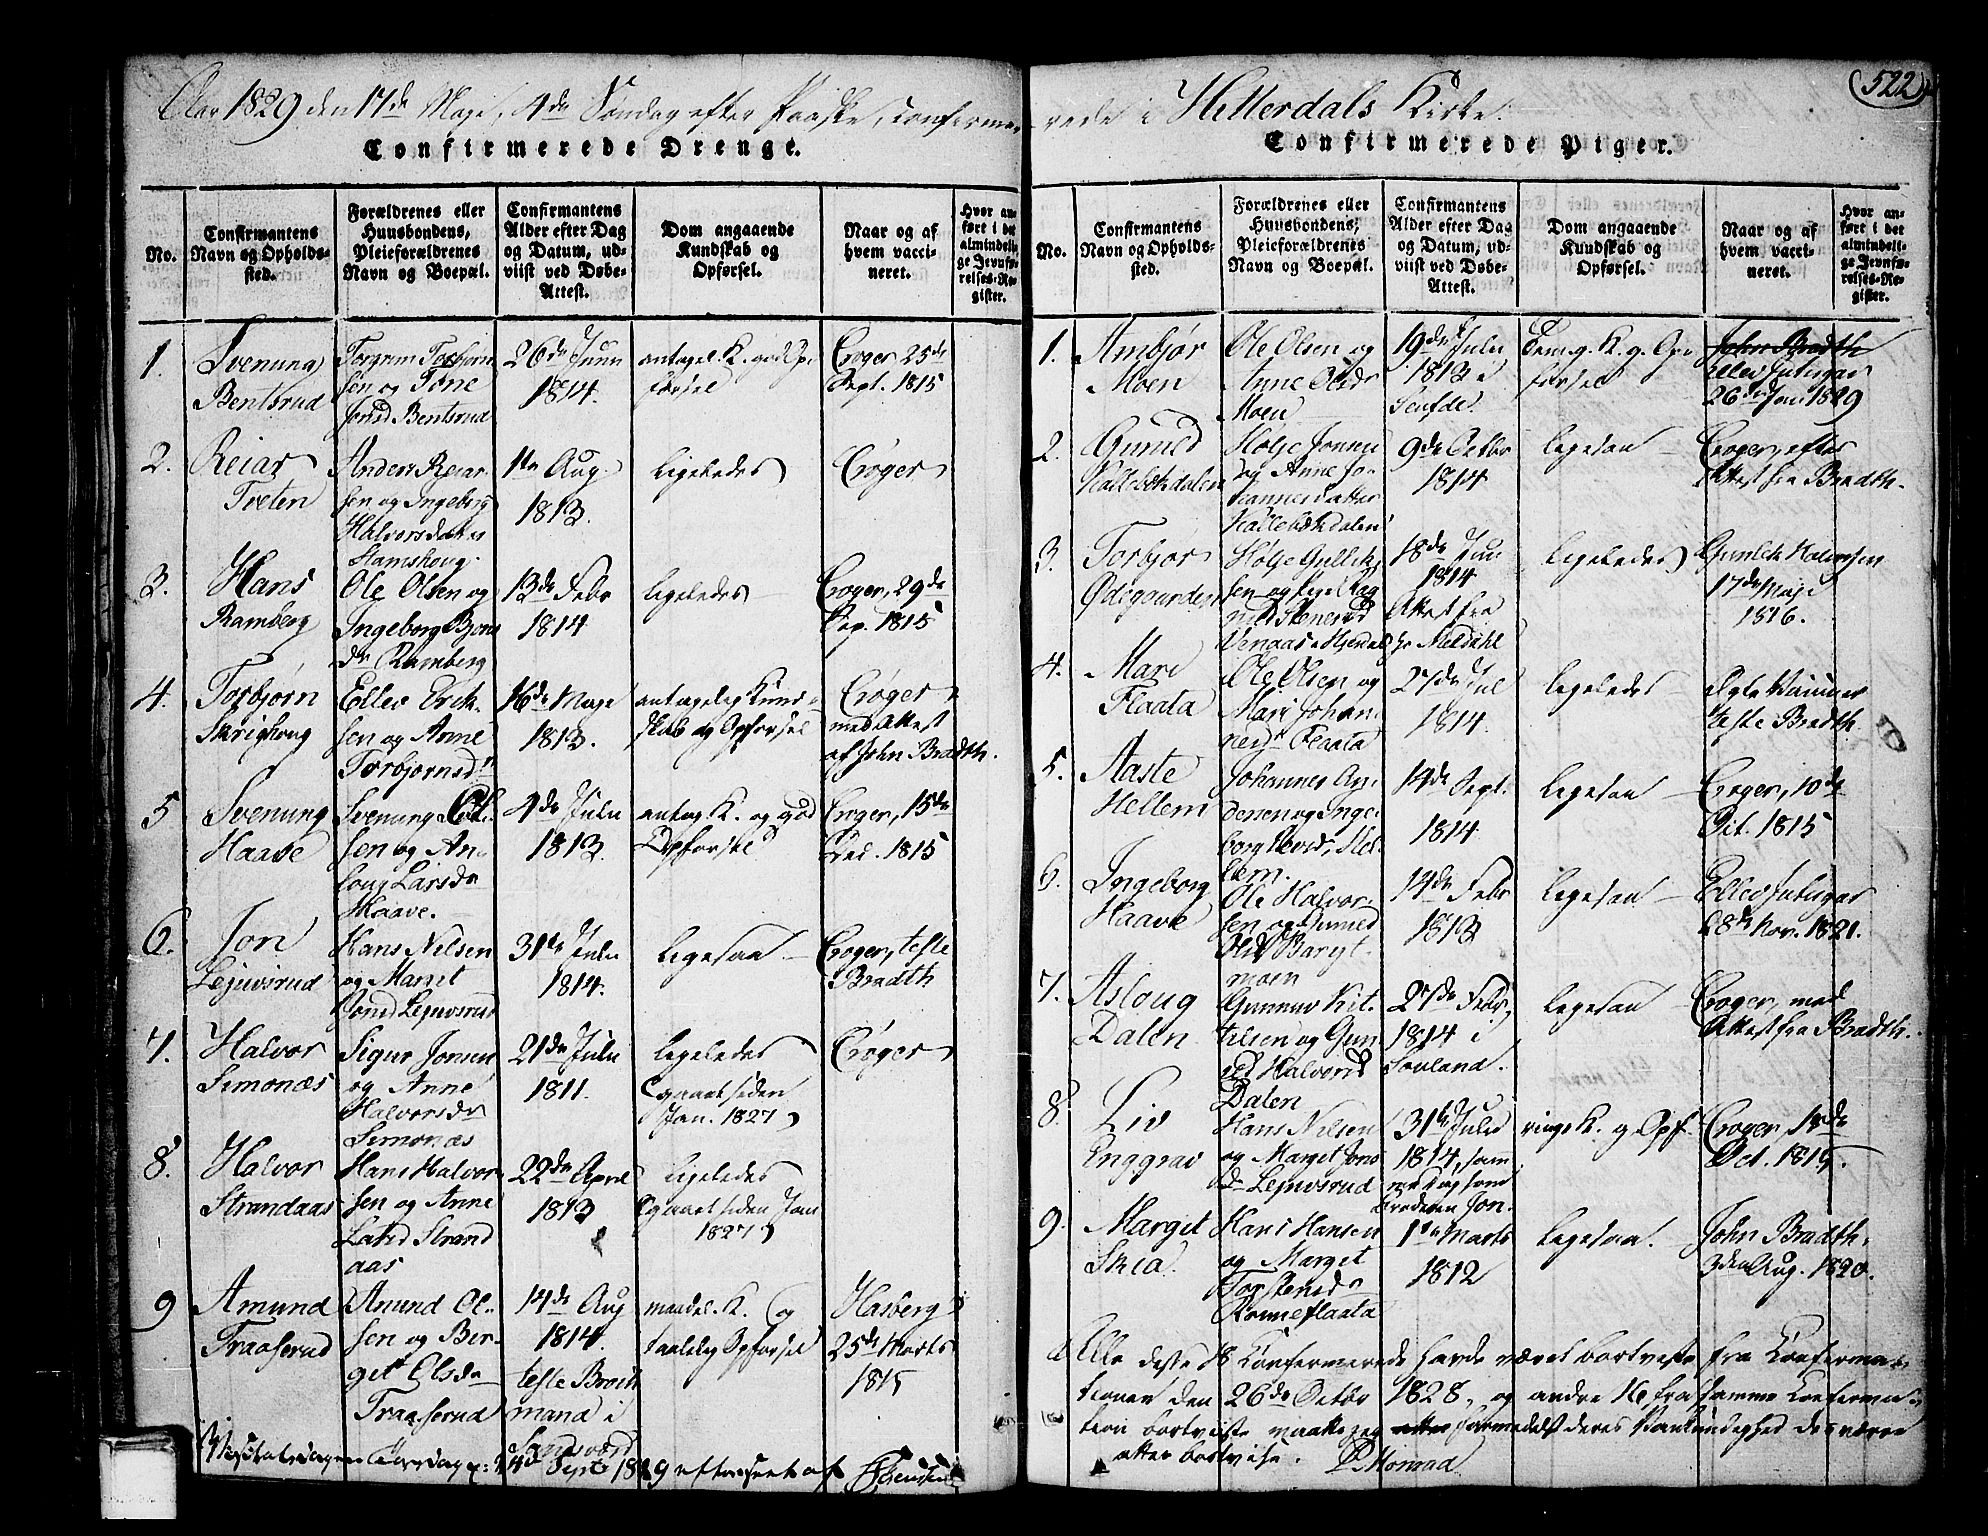 522
Aar 1829 den 17de Maji, 4de Søndag efter Paaske, confirmerede i Hitterdals Kirke.
Confirmerede Drenge.
No.
Confirmantens Navn og Opholdssted.
Forældrenes eller Huusbondens, Pleieforældrenes Navn og Boepæl.
Confirmantens Alder efter Dag og Datum, udviist ved Døbe-Attest.
Dom angaaende Kundskab og Opførsel.
Naar og af hvem vaccineret.
Hvor anført i det almindelige Jevnførelses-Register.
1.
Svenung
Bentsrud
Torgrim Torbjørn
sen og Tone
Jonsd Bentsrud
26de Juni
1814.
antagel. K. god Op
førsel
Crøger 25de
Sept. 1815
2.
Reiar
Tveten
Anders Reiar
sen og Ingeborg
Halvorsdatter
1te Aug.
1813.
ligeledes
Crøger
3.
Hans
Ramberg
Ole Olsen og
Ingeborg Bjøns
dr Ramberg
13de Febr
1814
ligeledes
Crøger, 29de
Sep. 1815
4.
Torbjørn
Skrighoug
Ellev Erik
sen og Anne
Torbjørnsdr
16de Maji
1813.
antagelig Kund
skab og Opførsel
Crøger
med Attest
af John Bradth.
5
Svenung
Haave
Svenung
sen og As
loug Larsdr
Haave.
4de Julii
1813.
antag K. og god
Opførsel
Crøger, 15de
Dec. 1815
6.
Jon
Lejuvsrud
Hans Nilsen
og Marget
Jonsd Lejuvsrud
31te Julii
1814.
ligesaa
Crøger, teste
Bradth
7.
Halvor
Simonæs
Sigur Jonsen
og Anne
Halvorsdr
Simonæs
21de Julii
1811.
ligeledes
(gaaet siden
Jan. 1827)
Crøger
8.
Halvor
Strandaas
Hans Halvor
sen og Anne
Larsd Strand
aas
22de April
1813
ligeledes
(gaaet siden Jan
1827)
9
Amund
Traaserud
Anund Ol
sen og Bir
git Elsdr
Traaserud
14de Aug
1814.
teste
mand i
Sandsværd
maadel. K. og
taalelig Opførsel
Hasberg
25de Marts
1815
Sept 1829 efterseet af
Confirmerede Piger.
No.
Confirmantens Navn og Opholdssted.
Forældrenes eller Huusbondens, Pleieforældrenes Navn og Boepæl.
Confirmantens Alder efter Dag og Datum, udviist ved Døbe-Attest.
Dom angaaende Kundskab og Opførsel.
Naar og af hvem vaccineret.
Hvor anført i det almindelige Jevnførelses-Register.
1.
Ambjør
Moen
Ole Olsen og
Anne Olsdr
Moen
19de Julii
1813 i
Saufde.
Tem. g. K. g. Op
førsel
John Bradth
26de Jan 1829
2.
Gunild
Kallebekdalen
Holje Jonsen
og Anne Jo
hannesdatter
Kallebekdalen
9de Octbr
1814
ligesaa
Crøger, efter
Attest fra Bradth.
3.
Torbjør
Ødegaarden
Holje Gullik
sen og Pige Rag
nild Stenersd
Venaas i Hjerdal
18de Jun
1814
Attest fra
Hr Meldahl
ligeledes
Gunlek Halvorsen
17de Maji
1816.
4.
Mari
Flaata
Ole Olsen og
Mari Johan
nesdr Flaata
27de Jul
1814.
ligeledes
teste Bradth
5.
Aaste
Hellem
Johannes An
dersen og Inge
borg Hovids, Hel
lem.
14de Sept.
1814
ligesaa
Crøger, 10de
Oct. 1815
6.
Ingeborg
Haave
Ole Halvor
sen og Gunild
Olsd
moen
14de Febr
1813
ligesaa
28de Nov. 1821.
7.
Asloug
Dalen
Gunnuv Kit
telsen og Gun
ild Halvorsd
Dalen
27de Febr,
1814 i
Souland.
ligesaa
Crøger, med
Attest fra Bradth.
8.
Liv
Enggrav
Hans Nilsen
og Marget Jons
dr Lejuvsrud
31te Julii
1814, sam
me Dag som
Broderen Jon.
ringe K. g. Opf.
Crøger, 18de
Oct. 1815.
9.
Marget
Skeia.
Hans Hansen
og Marget
Torstensdr
Rønneflaata
1te Marts
1812
ligesaa.
John Bradth,
3den Aug. 1820.
Alle disse 18 Confirmerede havde været bortviste fra Confirma-
tionen den 26de Octbr 1828, og andre 16 fra samme Confirma-
tion bortviste maatte jeg formedelst deres Vankundighed desværre
atter bortvise. Monrad